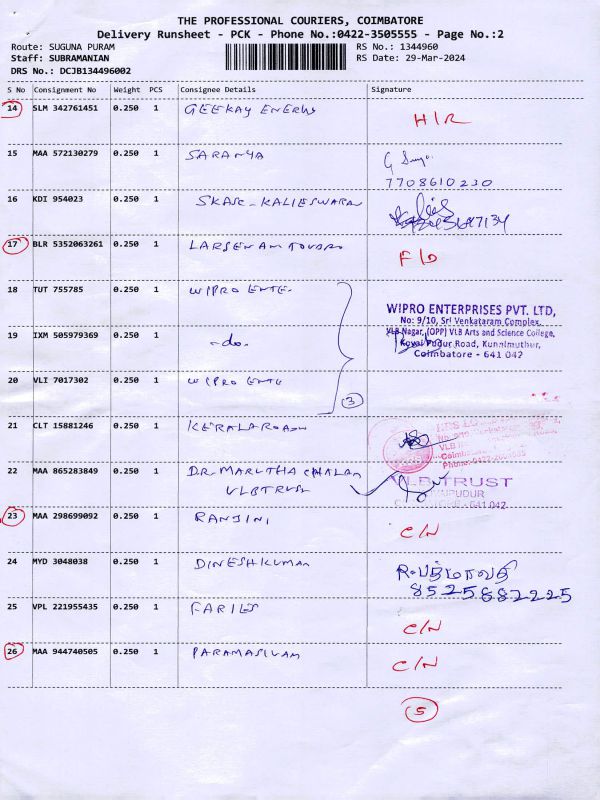 THE PROFESSIONAL COURIERS, COIMBATORE
Delivery Runsheet - PCK - Phone No.:0422-3505555 - Page No.:2
Route: SUGUNA PURAM
Staff: SUBRAMANIAN
DRS No.: DCJB134496002
RS No.: 1344960
RS Date: 29-Mar-2024
S No Consignment No Weight PCS Consignee Details Signature
14 SLM 342761451 0.250 1 GEEKAY ENERGY H/R
15 MAA 572130279 0.250 1 SARANYA
7708610230
16 KDI 954023 0.250 1 SKASC-KALIESWARAN
17 BLR 5352063261 0.250 1 LARSEN AM TOUBRO F/D
18 TUT 755785 0.250 1 WIPRO ENTE-
19 IXM 505979369 0.250 1 -do-
20 VLI 7017302 0.250 1 WIPRO ENTE
3
WIPRO ENTERPRISES PVT. LTD,
No: 9/10, Sri Venkataram Complex,
VLB Nagar, (OPP) VLB Arts and Science College,
Kovai Pudur Road, Kunnimuthur,
Coimbatore - 641 042
21 CLT 15881246 0.250 1 KERALA ROADW
22 MAA 865283849 0.250 1 DR. MARUTHACHALAM
VLB TRUST
VLB TRUST
23 MAA 298699092 0.250 1 RANJINI C/N
24 MYD 3048038 0.250 1 DINESHKUMAR R.பத்மாவதி
8525882225
25 VPL 221955435 0.250 1 FARILES C/N
26 MAA 944740505 0.250 1 PARAMASIVAM C/N
5